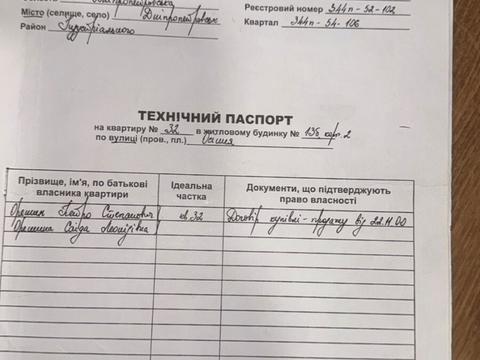 Дніпропетровська
Місто (селище, село) Дніпропетровськ
Район Індустріального
Реєстровий номер 344п-52-102
Квартал 344п-54-106
ТЕХНІЧНИЙ ПАСПОРТ
на квартиру № 32 в житловому будинку № 13б кор. 2
по вулиці (пров., пл.)
Прізвище, ім'я, по батькові власника квартири
Ідеальна частка
Документи, що підтверджують право власності
Петро Степанович кв.32 Договір купівлі-продажу від 22.11.00